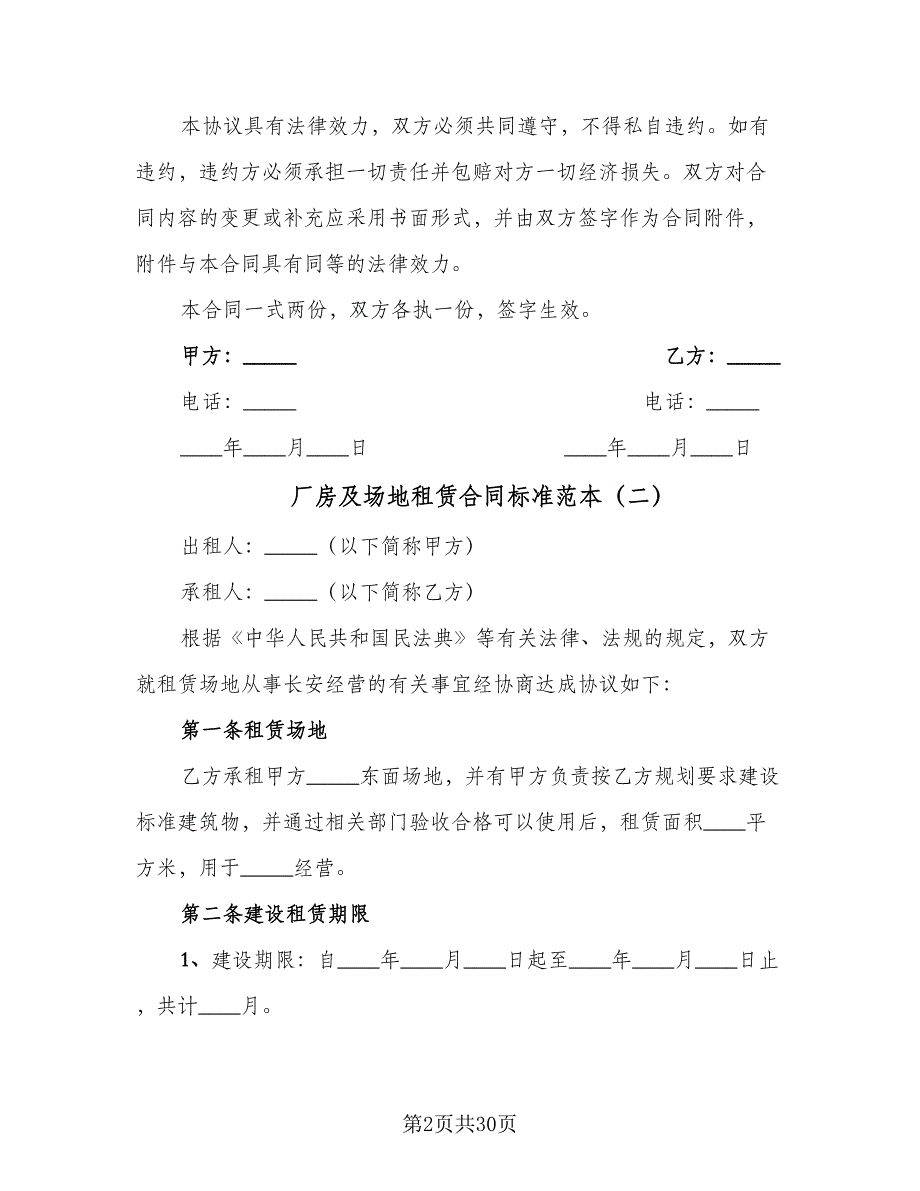 本协议具有法律效力，双方必须共同遵守，不得私自违约。如有
违约，违约方必须承担一切责任并包赔对方一切经济损失。双方对合
同内容的变更或补充应采用书面形式，并由双方签字作为合同附件，
附件与本合同具有同等的法律效力。
本合同一式两份，双方各执一份，签字生效。
甲方：_____ 乙方：_____
电话：_____ 电话：_____
____年____月____日 ____年____月____日
厂房及场地租赁合同标准范本（二）
出租人：_____（以下简称甲方）
承租人：_____（以下简称乙方）
根据《中华人民共和国民法典》等有关法律、法规的规定，双方
就租赁场地从事长安经营的有关事宜经协商达成协议如下：
第一条租赁场地
乙方承租甲方_____东面场地，并有甲方负责按乙方规划要求建设
标准建筑物，并通过相关部门验收合格可以使用后，租赁面积____平
方米，用于_____经营。
第二条建设租赁期限
1、建设期限：自____年____月____日起至____年____月____日止
，共计____月。
第2页共30页